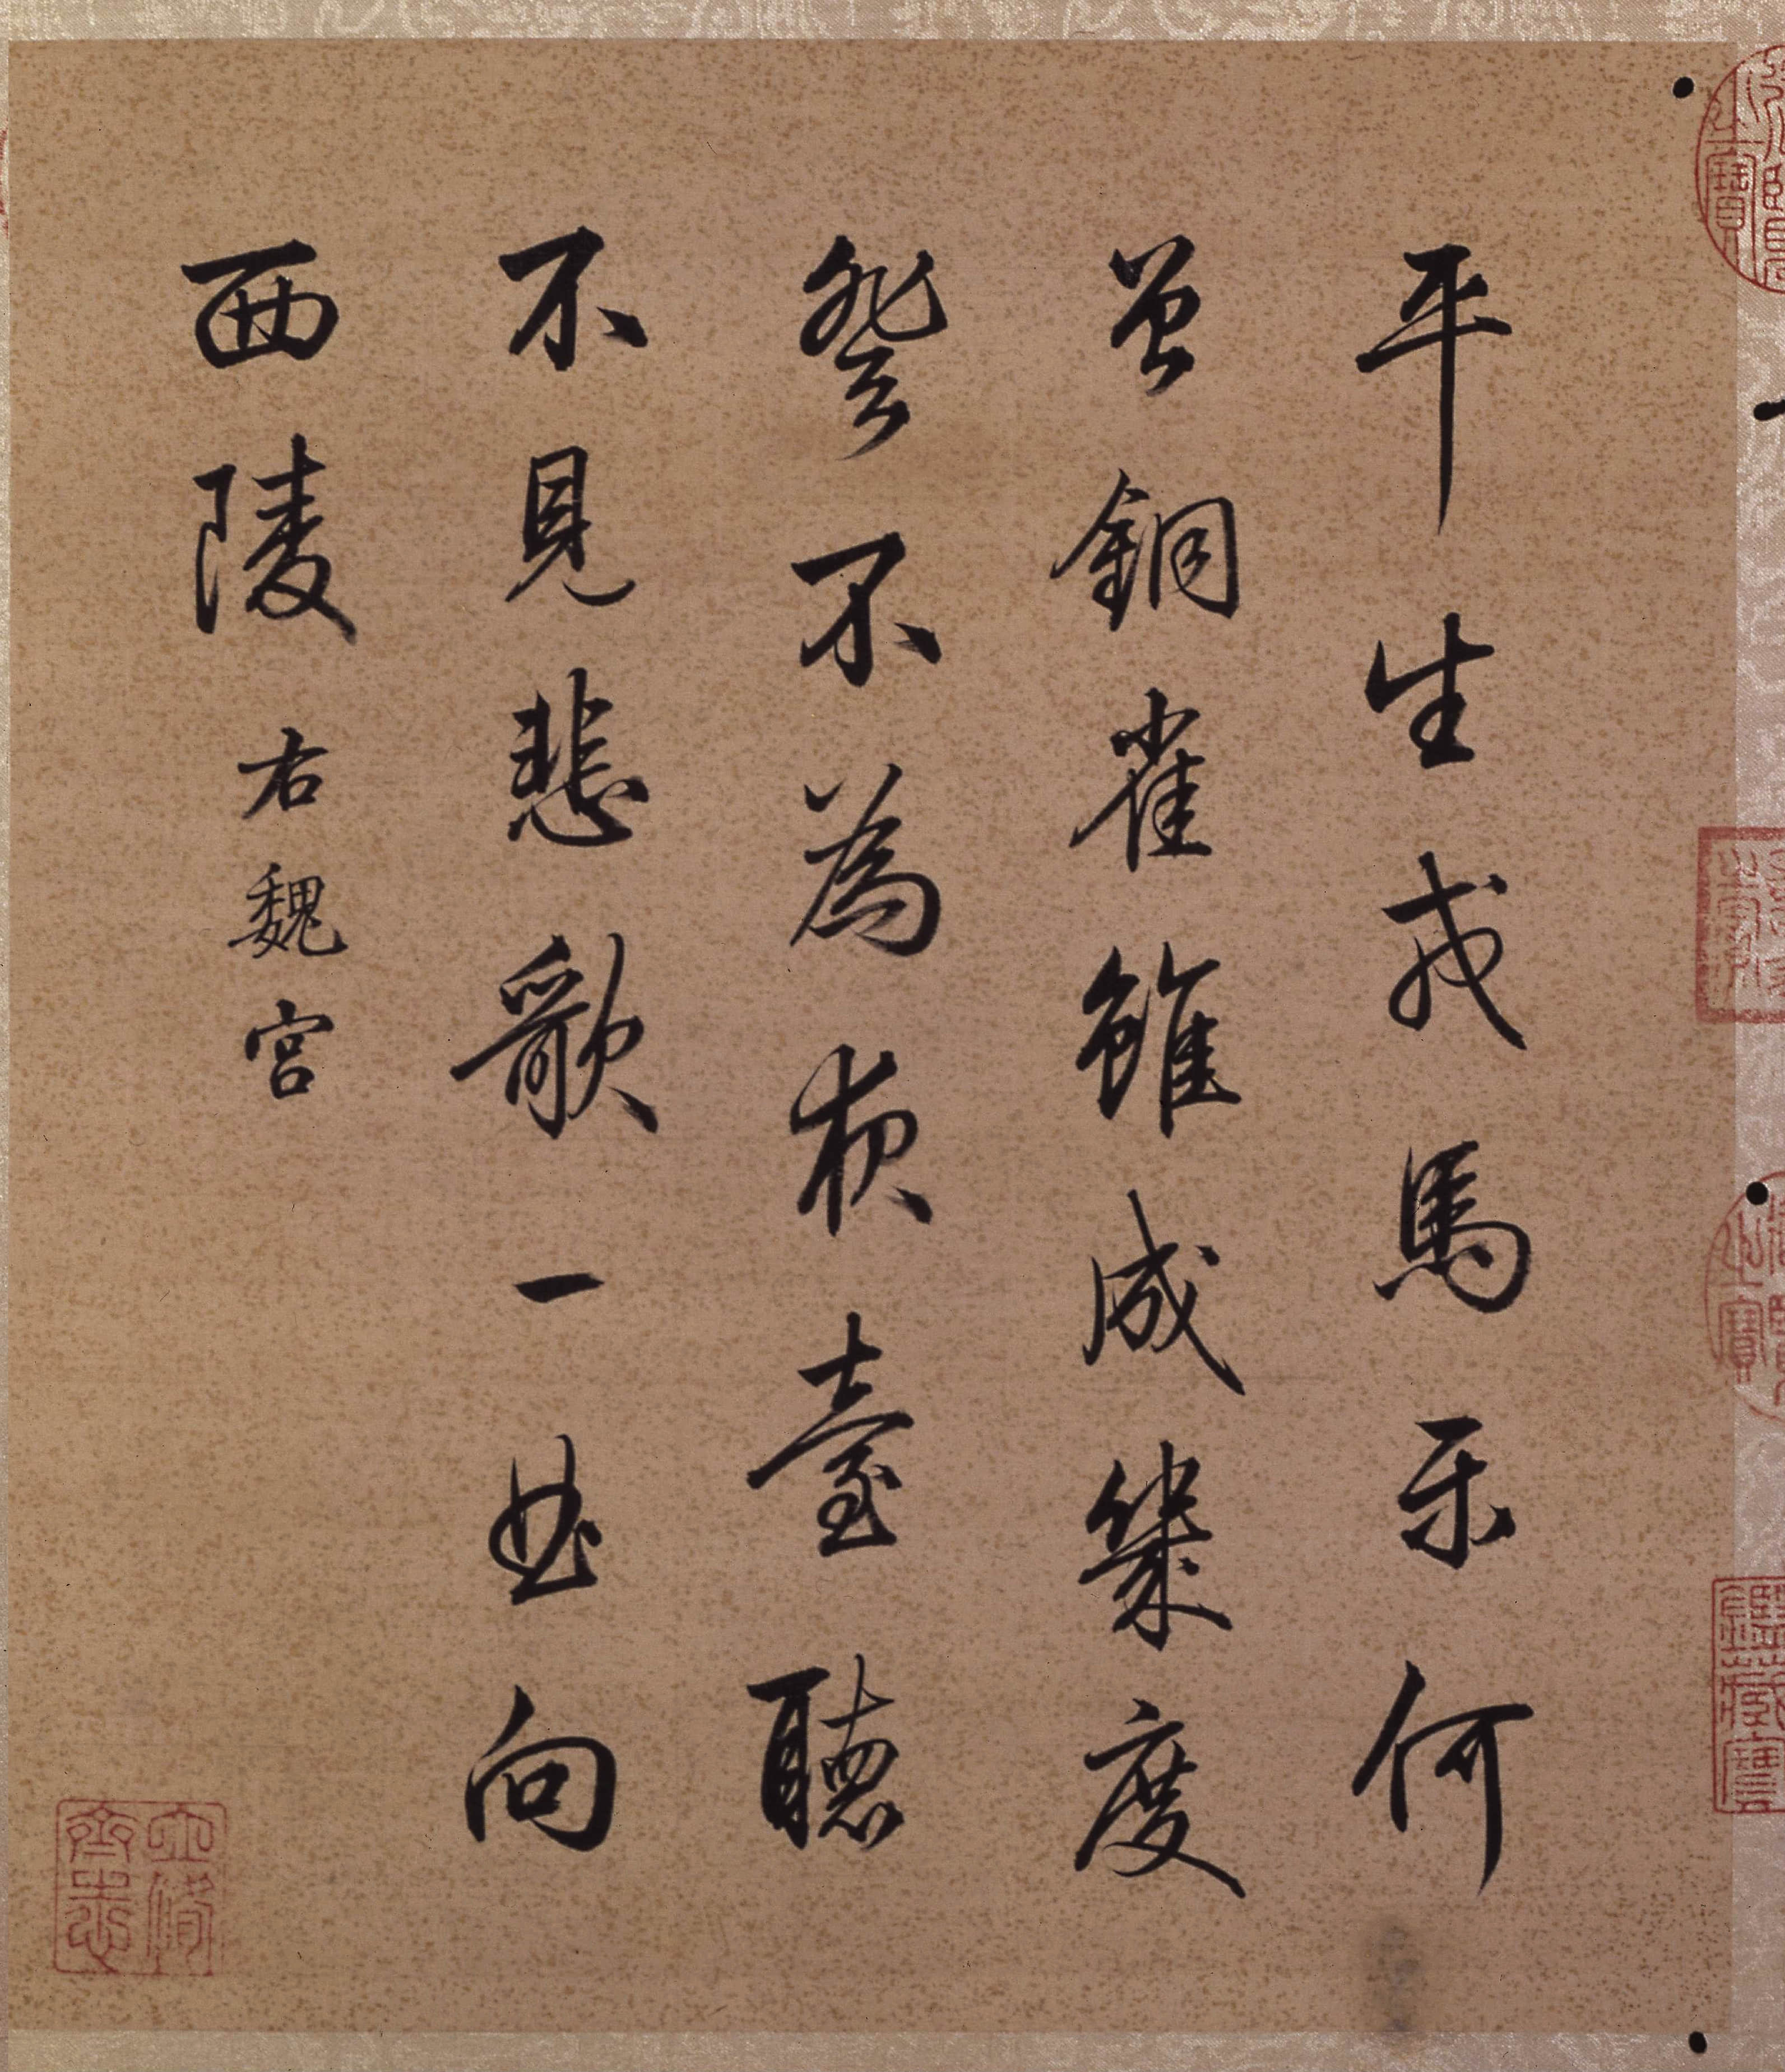 平生戎馬乐何
曾銅雀雖成幾度
登不為夜臺聽
不見悲歌一曲向
西陵 右魏宮